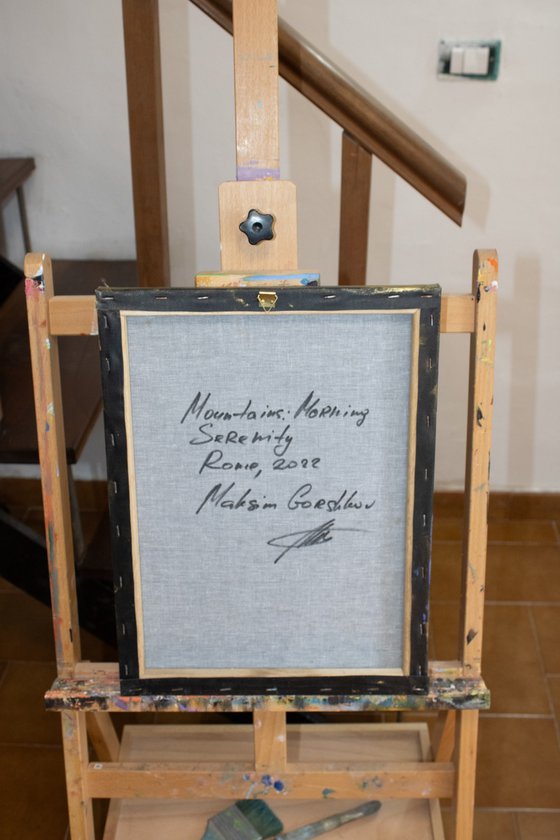 Mountains: Morning
Serenity
Rome, 2022
Maksim Gorshkov